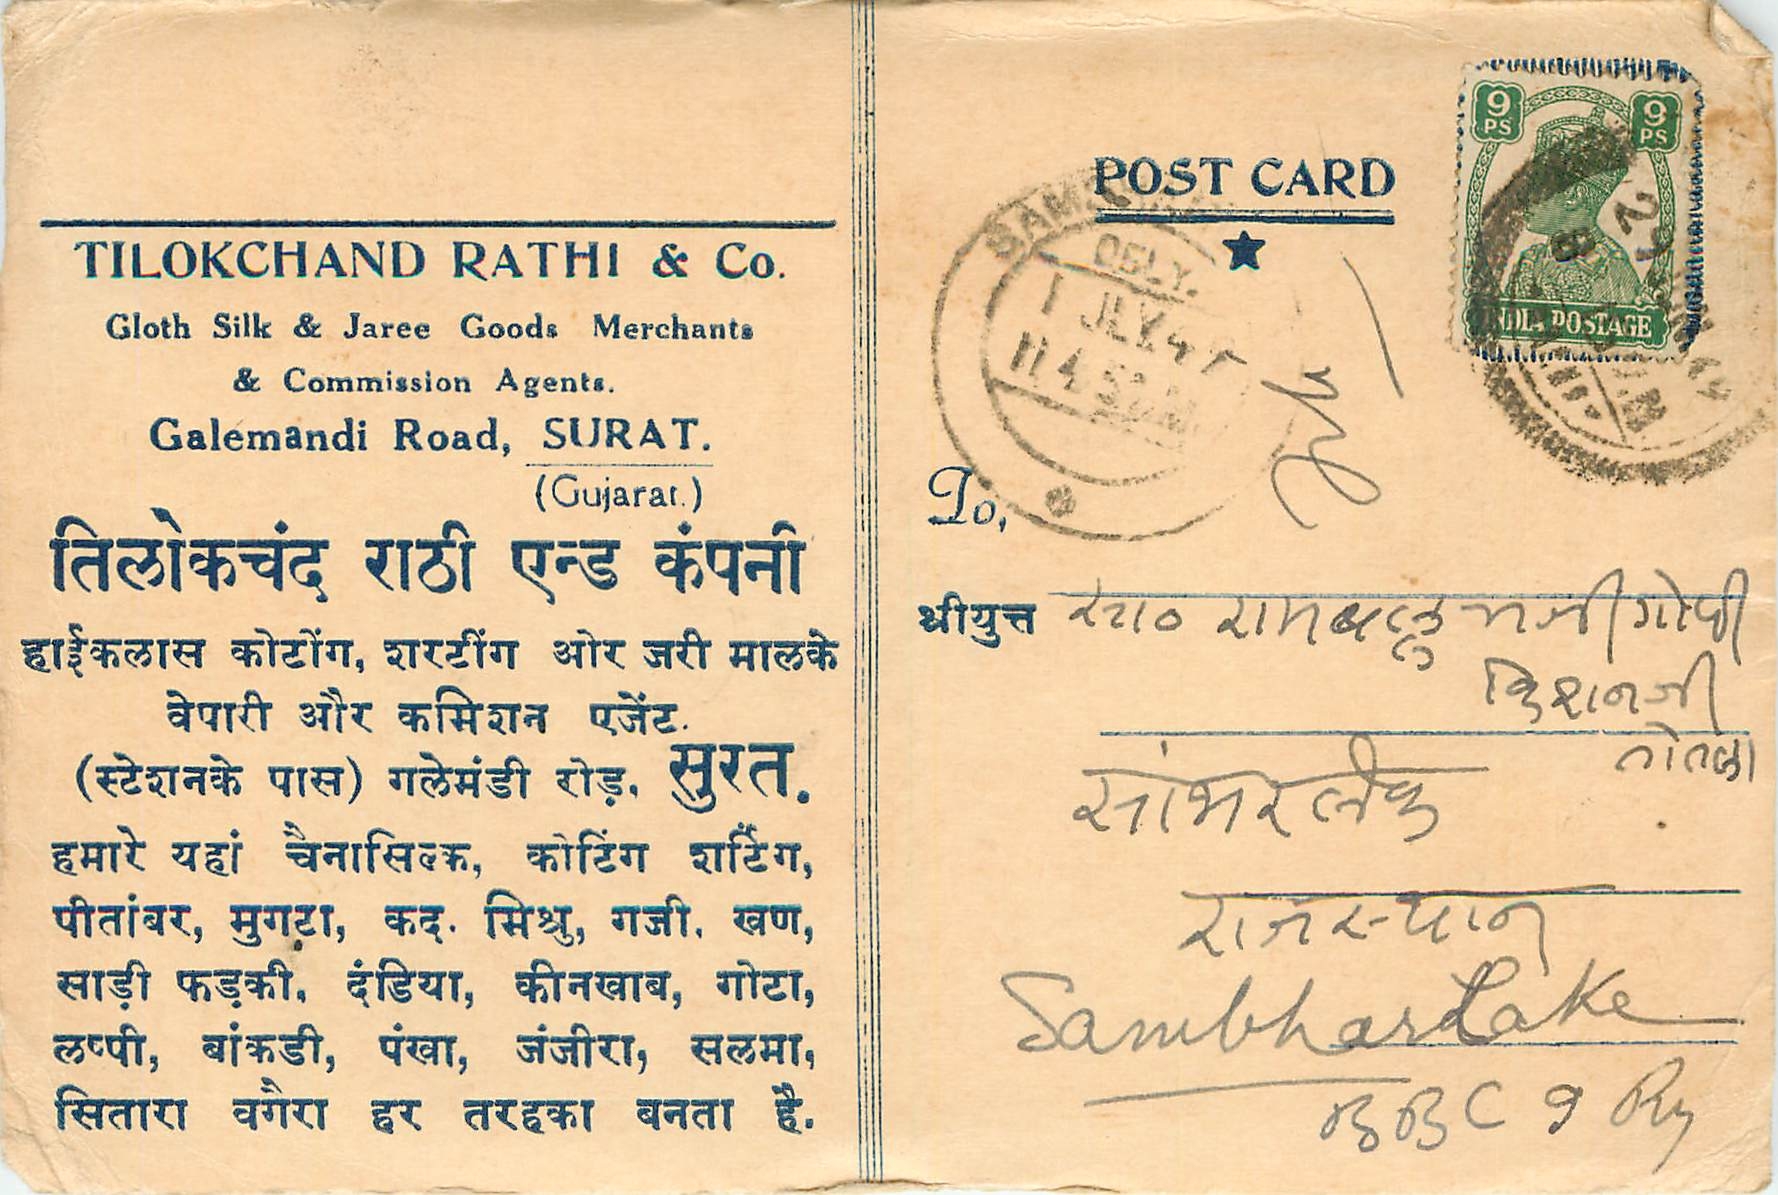 TILOKCHAND RATHI & Co.
Gloth Silk & Jaree Goods Merchants
& Commission Agents.
Galemandi Road, SURAT.
(Gujarat.)
तिलोकचंद राठी एन्ड कंपनी
हाईकलास कोटोंग, शरटींग ओर जरी मालके
वेपारी और कमिशन एजेंट.
(स्टेशनके पास) गलेमंडी रोड़. सुरत.
हमारे यहां चैनासिल्क, कोटिंग शर्टिंग,
पीतांबर, मुगटा, कद. मिश्रु, गजी. खण,
साड़ी फड़की, दंडिया, कीनखाब, गोटा,
लप्पी, बांकडी, पंखा, जंजीरा, सलमा,
सितारा वगैरा हर तरहका बनता है.
POST CARD
9 PS 9 PS
INDIA POSTAGE
DELY.
1 JLY 47
To,
श्रीयुत्त रा० रामबलू मजी गोपी
किशनजी
तोतला
सांभरलेक
राजस्थान
Sambhar Lake
BBC I Ry